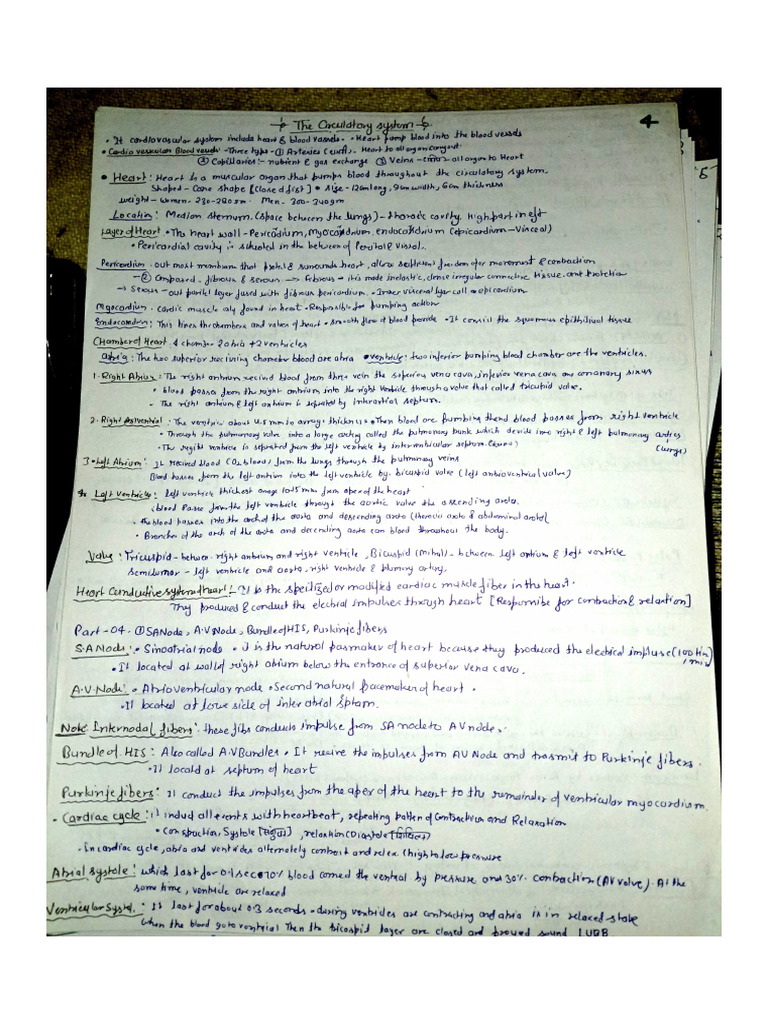 The Circulatory system
4
• It cardiovascular system include heart & blood vessels. • Heart pump blood into the blood vessels
• Cardio vascular Blood vessels - Three type - ① Arteries - Heart to all organ
Capillaries :- nutrient & gas exchange ③ Veins - all organ to Heart
• Heart : Heart is a muscular organ that pumps blood throughout the circulatory system.
Shaped - Cone shape [closed fist] • size - 12cm long, 9cm width, 6cm thickness
weight - Women - 230-280gm. Men - 300-340gm
Location : Median sternum. (space between the lungs) - thoracic cavity. High part in
Layer of Heart • The heart wall - Pericardium, Myocardium, endocardium (epicardium - Visceal)
• Pericardial cavity is in the between of
Pericardium - out most membrane that & surrounds heart, allow freedom for movement & contraction
② Composed - fibrous & serous → fibrous • it is made inelastic, dense irregular connective tissue.
→ Serous - layer fused with fibrous pericardium. • Inner visceral layer call • epicardium
Myocardium - Cardic muscle found in heart • Responsible for pumping action
Endocardium : This lines the chambers and valves of heart • smooth flow of blood • It consist the squamous epithilial tissue
Chamber of Heart : 4 chamber - 2 atria + 2 ventricles
Atria : The two superior reciving chamber blood are atria • ventricle : two inferior pumping blood chamber are the ventricles.
1. Right Atrium : The right recived blood from three vein the superior vena cava, inferior vena cava and coronary sinus
• blood passes from the right into the right ventricle through a valve that called tricuspid valve.
- The right & left is separated by septum.
2. Right : The about 4.5 mm in averge thickness • Then blood are pumbing blood passes from right ventricle
• Through the pulmonary valve into a large artery called the pulmonary trunk which devide into right & left pulmonary
• The right ventricle is seperated from the left ventricle by interventricular septum. (lungs)
3 • Left Atrium : It recived blood (O₂ blood) from the lungs through the pulmonary veins
Blood passes from the left into the left ventricle by bicuspid valve (left valve)
Left Ventricle : left ventricle thickest 10-15 mm of the heart
blood Passe from the left ventricle through the aortic valve the ascending aorta.
• the blood passes into the arch of the aorta and descending aorta (thoracic aorta & abdominal aorta)
• Branches of the arch of the aorta and decending aorta can blood throughout the body.
Valv : Tricuspid - between - right and right ventricle, Bicuspid (mitral) - between left & left ventricle
Semilunar - left ventricle and aorta, right ventricle &
Heart Conductive system of heart :- It is the or modified cardiac muscle fiber in the heart.
They produced & conduct the impulses through heart [Responsibe for contraction & relaxtion]
Part - 04. ① SA Node, A.V. Node, Bundle of HIS, Purkinje fibers
S.A Node : • Sinoatrial node • it is the natural of heart because they produced the electrical impluse
• It located at wall of right atrium below the entrance of superior vena cava.
A.V. Node : • Atrio ventricular node • Second natural pacemaker of heart.
• It located at side of inter atrial
Note Internodal fibers : these fibs conducts impulse from SA node to AV node.
Bundle of HIS : Also called A.V Bundles • It recive the impulses from AV Node and trasmit to Purkinje fibers.
• It locatd at septum of heart
Purkinje fibers : It conduct the impulses from the apex of the heart to the remainder of ventricular myocardium.
• Cardiac cycle : it all events with heartbeat, repeating patten of Contraction and Relaxation
• Systole, relaxtion (Diastole)
• In cardiac cycle, atria and ventricles alternately contract and relax (high to low pressure
Atrial systole : which last for 0.1 sec • 70% blood the by pressure and 30% contraction (AV valve). At the
some time, ventricle are relaxed
Ventricular : • It last for about 0.3 seconds • during ventricles are contracting and atria is in relaxed state
when the blood go to Then the layer are closed and sound LUBB